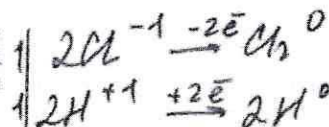 1| 2Cl⁻¹ –2ē→ Cl₂⁰
1| 2H⁺¹ +2ē→ 2H⁰